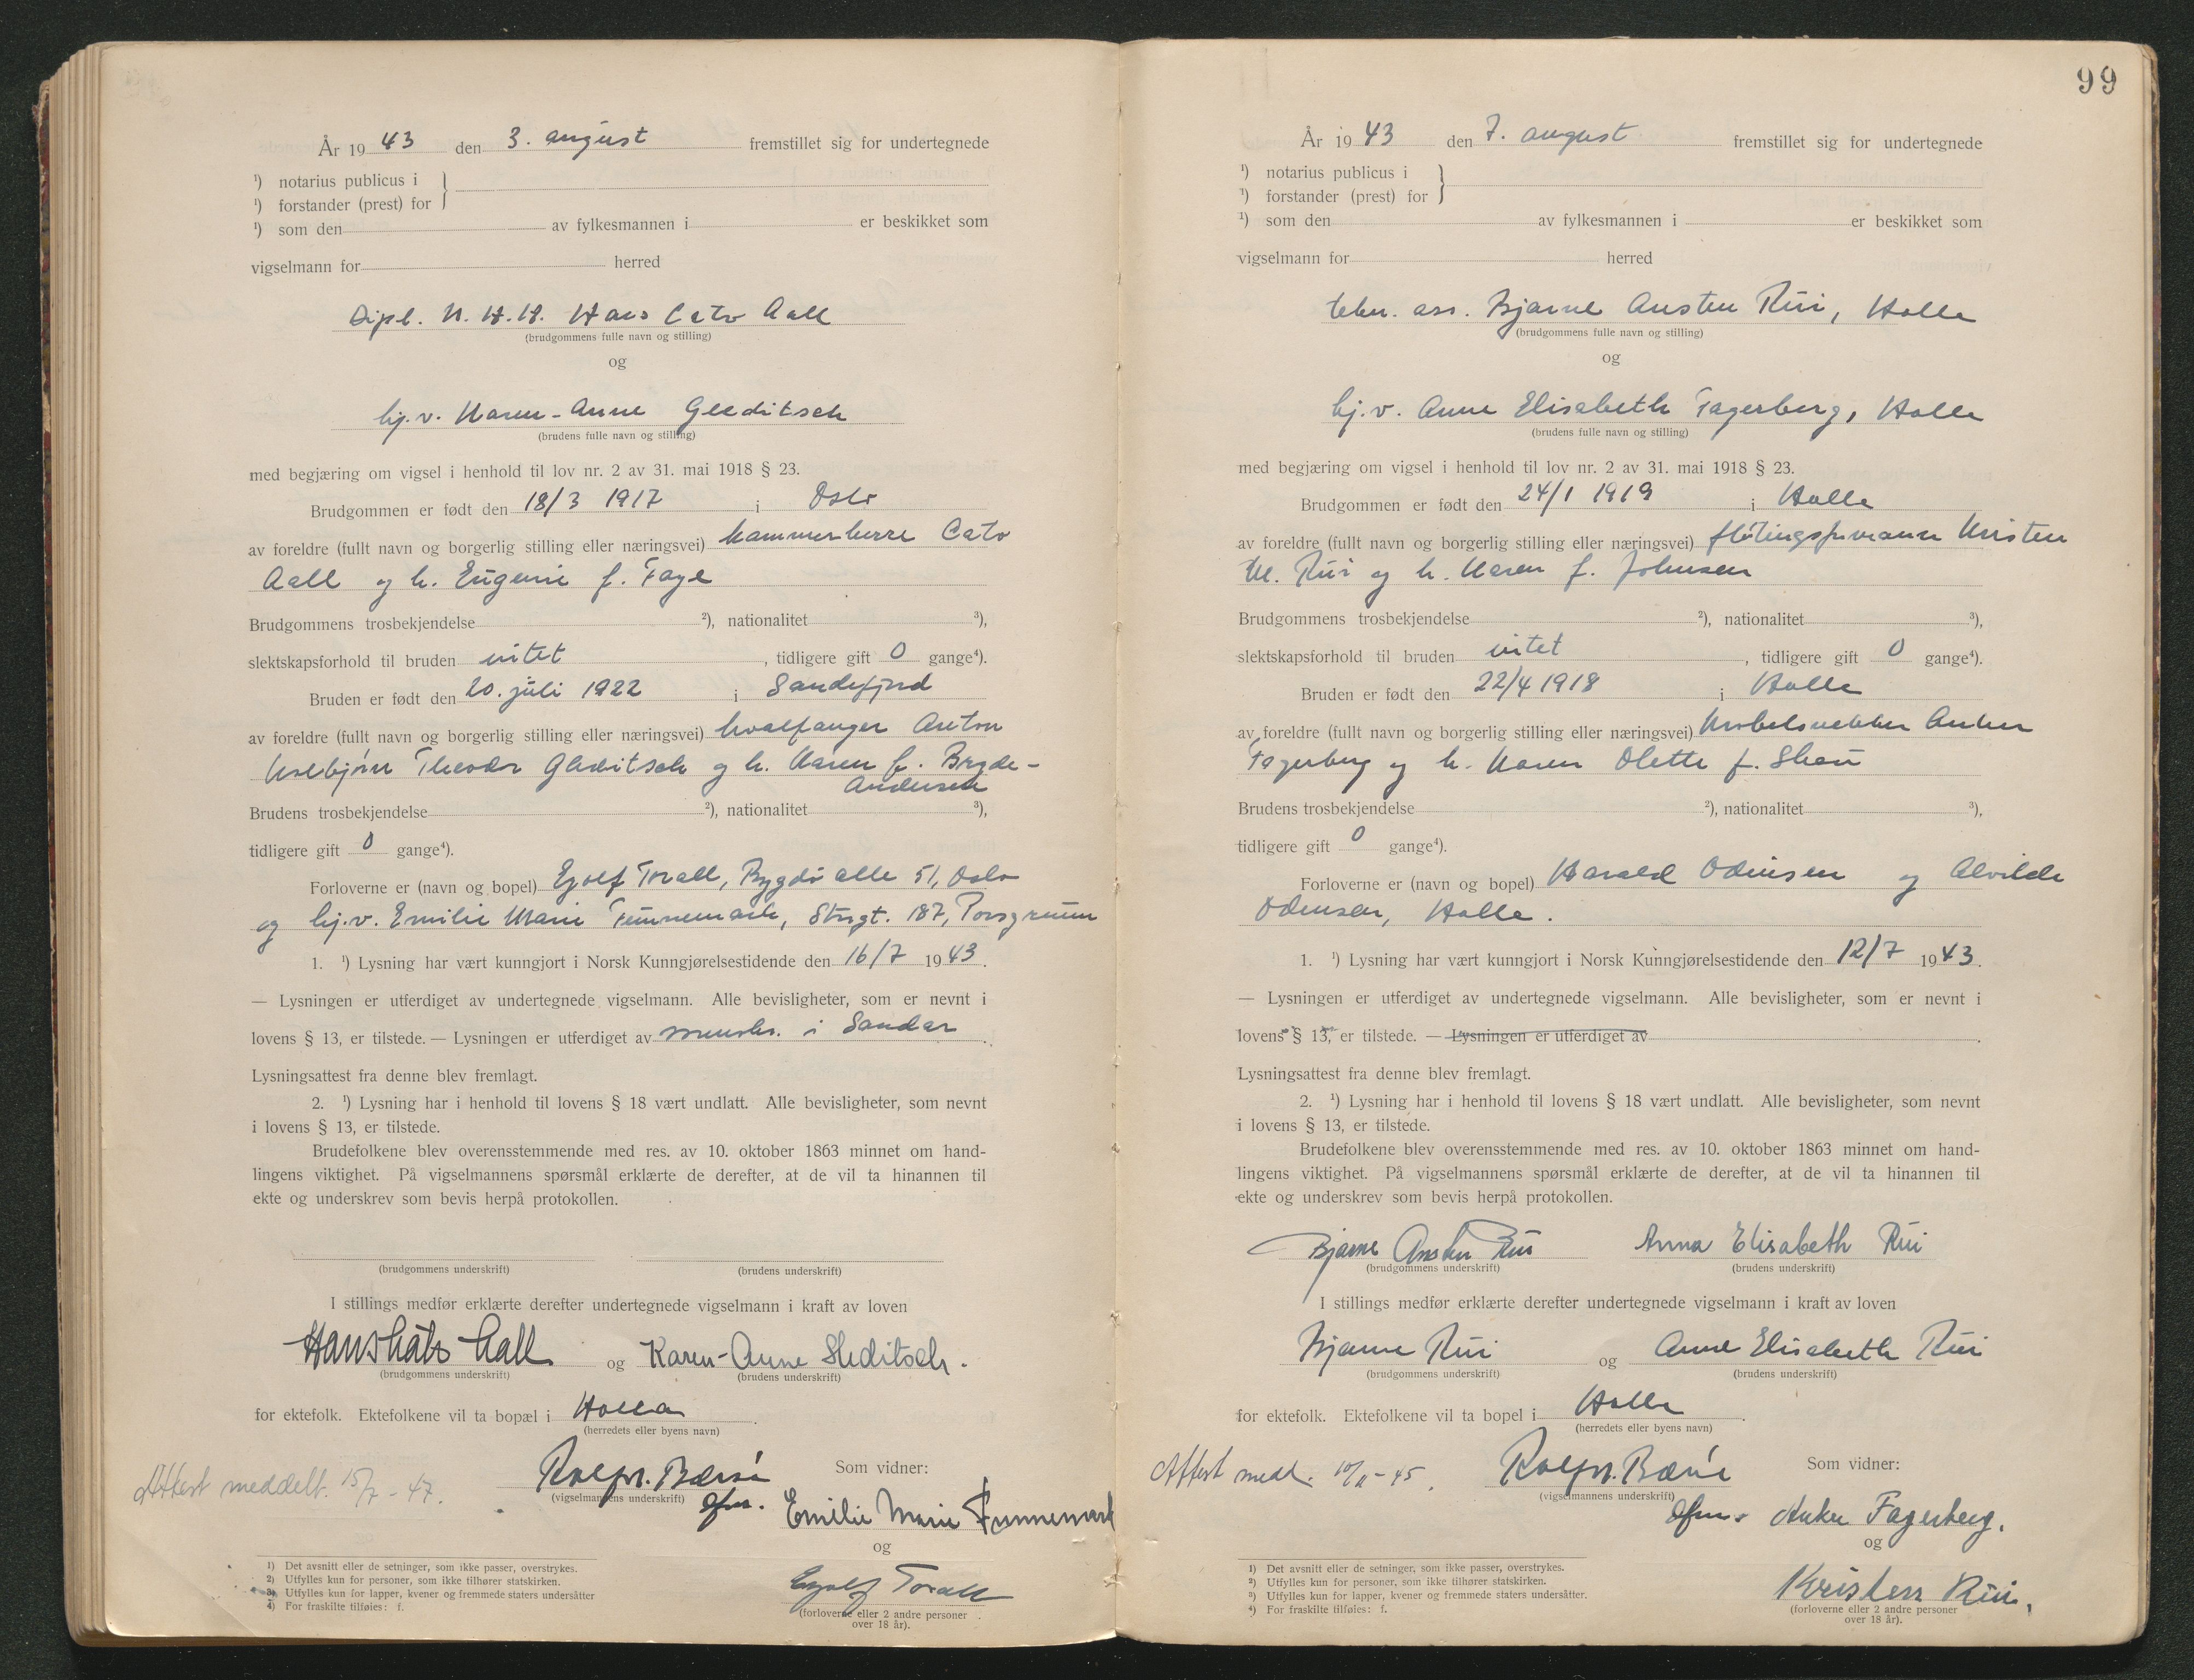 År 19 43 den 3. august fremstillet sig for undertegnede
¹) notarius publicus i
¹) forstander (prest) for
¹) som den av fylkesmannen i er beskikket som
vigselmann for herred
Dipl. N.H.H. Hans Cato Aall
(brudgommens fulle navn og stilling)
og
hj.v. Karen-Anne Gleditsch
(brudens fulle navn og stilling)
med begjæring om vigsel i henhold til lov nr. 2 av 31. mai 1918 § 23.
Brudgommen er født den 18/3 1917 i Oslo
av foreldre (fullt navn og borgerlig stilling eller næringsvei) kammerherre Cato
Aall og h. Eugenie f. Faye
Brudgommens trosbekjendelse ²), nationalitet ³),
slektskapsforhold til bruden intet , tidligere gift 0 gange⁴).
Bruden er født den 20. juli 1922 i Sandefjord
av foreldre (fullt navn og borgerlig stilling eller næringsvei) hvalfanger Anton
Kolbjørn Theodor Gleditsch og h. Karen f. Bryde-
Andersen
Brudens trosbekjendelse ²), nationalitet ³),
tidligere gift 0 gange⁴).
Forloverne er (navn og bopel) Eyolf Torall, Bygdø alle 51, Oslo
og hj.v. Emilie Marie Funnemark, Storgt. 187, Porsgrunn
1. ¹) Lysning har vært kunngjort i Norsk Kunngjørelsestidende den 16/7 19 43.
— Lysningen er utferdiget av undertegnede vigselmann. Alle bevisligheter, som er nevnt i
lovens § 13, er tilstede. — Lysningen er utferdiget av i Sandar .
Lysningsattest fra denne blev fremlagt.
2. ¹) Lysning har i henhold til lovens § 18 vært undlatt. Alle bevisligheter, som nevnt
i lovens § 13, er tilstede.
Brudefolkene blev overensstemmende med res. av 10. oktober 1863 minnet om hand-
lingens viktighet. På vigselmannens spørsmål erklærte de derefter, at de vil ta hinannen til
ekte og underskrev som bevis herpå protokollen.
(brudgommens underskrift) (brudens underskrift)
I stillings medfør erklærte derefter undertegnede vigselmann i kraft av loven
Hans Cato Aall og Karen-Anne Gleditsch.
(brudgommens underskrift) (brudens underskrift)
for ektefolk. Ektefolkene vil ta bopæl i Holla .
(herredets eller byens navn)
Attest meddelt. 15/7 - 47.
Rolf H. Bærø Som vidner:
(vigselmannens underskrift)
Emilie Marie Funnemark
og
Eyolf Torall
(forloverne eller 2 andre personer
over 18 år).
1) Det avsnitt eller de setninger, som ikke passer, overstrykes.
2) Utfylles kun for personer, som ikke tilhører statskirken.
3) Utfylles kun for lapper, kvener og fremmede staters undersåtter
4) For fraskilte tilføies: f.
99
År 19 43 den 7. august fremstillet sig for undertegnede
¹) notarius publicus i
¹) forstander (prest) for
¹) som den av fylkesmannen i er beskikket som
vigselmann for herred
ass. Bjarne Austen Rui, Holla
(brudgommens fulle navn og stilling)
og
hj.v. Anne Elisabeth Fagerberg, Holla
(brudens fulle navn og stilling)
med begjæring om vigsel i henhold til lov nr. 2 av 31. mai 1918 § 23.
Brudgommen er født den 24/1 1919 i Holla
av foreldre (fullt navn og borgerlig stilling eller næringsvei) fløtingsformann Kristen
M. Rui og h. Karen f. Johnsen
Brudgommens trosbekjendelse ²), nationalitet ³),
slektskapsforhold til bruden intet , tidligere gift 0 gange⁴).
Bruden er født den 22/4 1918 i Holla
av foreldre (fullt navn og borgerlig stilling eller næringsvei) Anker
Fagerberg og h. Karen Olette f. Skau
Brudens trosbekjendelse ²), nationalitet ³),
tidligere gift 0 gange⁴).
Forloverne er (navn og bopel) Harald Odinsen og Alvilde
Odinsen, Holla.
1. ¹) Lysning har vært kunngjort i Norsk Kunngjørelsestidende den 12/7 19 43.
— Lysningen er utferdiget av undertegnede vigselmann. Alle bevisligheter, som er nevnt i
lovens § 13, er tilstede. — Lysningen er utferdiget av .
Lysningsattest fra denne blev fremlagt.
2. ¹) Lysning har i henhold til lovens § 18 vært undlatt. Alle bevisligheter, som nevnt
i lovens § 13, er tilstede.
Brudefolkene blev overensstemmende med res. av 10. oktober 1863 minnet om hand-
lingens viktighet. På vigselmannens spørsmål erklærte de derefter, at de vil ta hinannen til
ekte og underskrev som bevis herpå protokollen.
Bjarne Austen Rui Anna Elisabeth Rui
(brudgommens underskrift) (brudens underskrift)
I stillings medfør erklærte derefter undertegnede vigselmann i kraft av loven
Bjarne Rui og Anne Elisabeth Rui
(brudgommens underskrift) (brudens underskrift)
for ektefolk. Ektefolkene vil ta bopel i Holla .
(herredets eller byens navn)
Attest medd. 10/11-45.
Rolf H. Bærø Som vidner:
(vigselmannens underskrift)
Anker Fagerberg.
og
Kristen Rui.
(forloverne eller 2 andre personer
over 18 år).
1) Det avsnitt eller de setninger, som ikke passer, overstrykes.
2) Utfylles kun for personer, som ikke tilhører statskirken.
3) Utfylles kun for lapper, kvener og fremmede staters undersåtter.
4) For fraskilte tilføies: f.